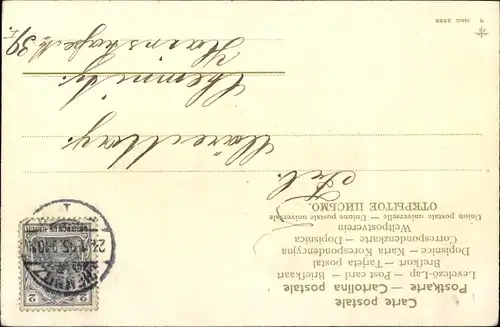 Carte postale
Postkarte — Cartolina postale
Levelező-Lap — Post card — Briefkaart
Brefkort — Tarjeta postal
Dopisnice — Karta Korespondencyjna
Correspondenzkarte — Dopisnica
Weltpostverein
Union postale universelle — Unione postale universale
ОТКРЫТОЕ ПИСЬМО.
Frl.
Chemnitz.
Hainstraße 39 I.
DEUTSCHES REICH
2 2
CHEMNITZ